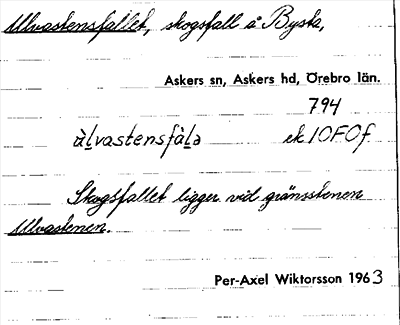 Ullvastensfallet, skogsfall å Bysta,
Askers sn, Askers hd, Örebro län.
794
ùlvastensfàlə ek 10F0f
Skogsfallet ligger vid gränsstenen
Ullvastenen.
Per-Axel Wiktorsson 1963